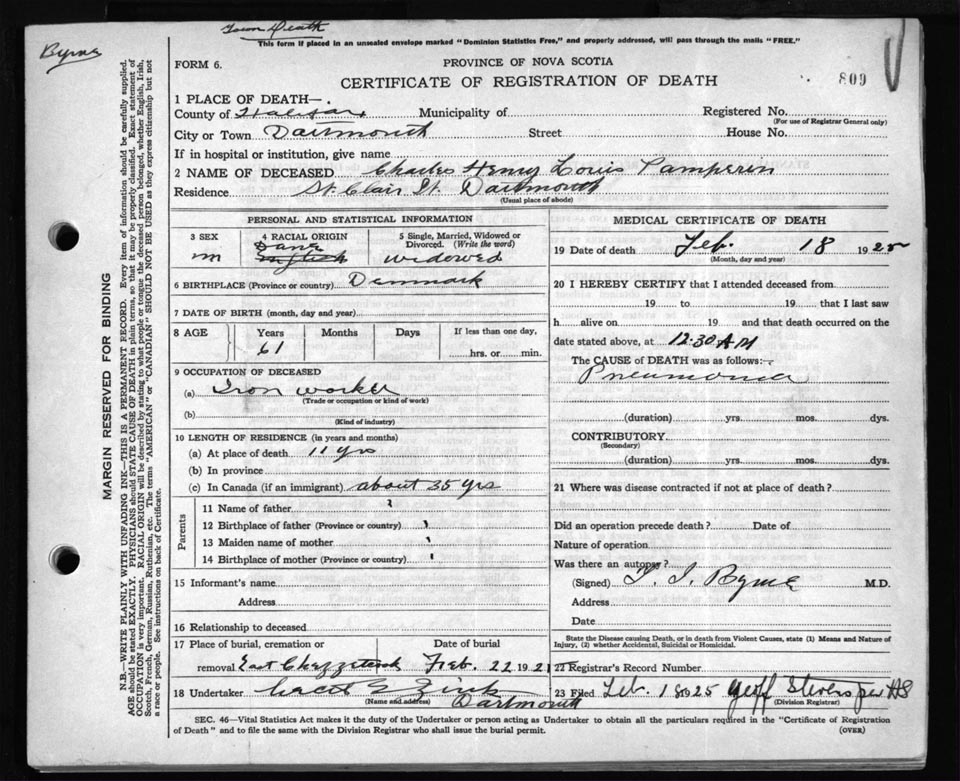 Town Death
This form if placed in an unsealed envelope marked "Dominion Statistics Free," and properly addressed, will pass through the mails "FREE."
Byrne
FORM 6.
PROVINCE OF NOVA SCOTIA
CERTIFICATE OF REGISTRATION OF DEATH
809
1 PLACE OF DEATH—
County of Halifax Municipality of Registered No.
(For use of Registrar General only)
City or Town Dartmouth Street House No.
If in hospital or institution, give name
2 NAME OF DECEASED Charles Henry Louis Tamperrin
Residence St. Clair St. Dartmouth
(Usual place of abode)
PERSONAL AND STATISTICAL INFORMATION
3 SEX
m
4 RACIAL ORIGIN
Dane
English
5 Single, Married, Widowed or
Divorced. (Write the word)
widowed
6 BIRTHPLACE (Province or country) Denmark
7 DATE OF BIRTH (month, day and year)
8 AGE Years Months Days If less than one day,
61 hrs. or min.
9 OCCUPATION OF DECEASED
(a) Iron worker
(Trade or occupation or kind of work)
(b)
(Kind of industry)
10 LENGTH OF RESIDENCE (in years and months)
(a) At place of death 11 yrs
(b) In province
(c) In Canada (if an immigrant) about 35 yrs
Parents
11 Name of father ?
12 Birthplace of father (Province or country)
13 Maiden name of mother
14 Birthplace of mother (Province or country)
15 Informant's name
Address
16 Relationship to deceased
17 Place of burial, cremation or Date of burial
removal East Chezzetcook Feb. 22 192
18 Undertaker Zink
(Name and address) Dartmouth
MEDICAL CERTIFICATE OF DEATH
19 Date of death Feb. 18 1925
(Month, day and year)
20 I HEREBY CERTIFY that I attended deceased from
19 to 19 that I last saw
h alive on 19 and that death occurred on the
date stated above, at 12:30 AM
The CAUSE of DEATH was as follows:—
Pneumonia
(duration) yrs. mos. dys.
CONTRIBUTORY
(Secondary)
(duration) yrs. mos. dys.
21 Where was disease contracted if not at place of death?
Did an operation precede death? Date of
Nature of operation
Was there an autopsy?
(Signed) T. I. Byrne M.D.
Address
Date
State the Disease causing Death, or in death from Violent Causes, state (1) Means and Nature of
Injury, (2) whether Accidental, Suicidal or Homicidal.
22 Registrar's Record Number
23 Filed Feb. 18 1925 Geoff Stevens per HS
(Division Registrar)
SEC. 46—Vital Statistics Act makes it the duty of the Undertaker or person acting as Undertaker to obtain all the particulars required in the "Certificate of Registration
of Death" and to file the same with the Division Registrar who shall issue the burial permit. (OVER)
MARGIN RESERVED FOR BINDING
N.B.—WRITE PLAINLY WITH UNFADING INK—THIS IS A PERMANENT RECORD. Every item of information should be carefully supplied.
AGE should be stated EXACTLY. PHYSICIANS should STATE CAUSE OF DEATH in plain terms, so that it may be properly classified. Exact statement of
OCCUPATION is very important. RACIAL ORIGIN will be described by stating to what people or tongue the deceased person belonged, whether English, Irish,
Scotch, French, German, Russian, Ruthenian, etc. The terms "AMERICAN" or "CANADIAN" SHOULD NOT BE USED as they express citizenship but not
a race or people. See instructions on back of Certificate.